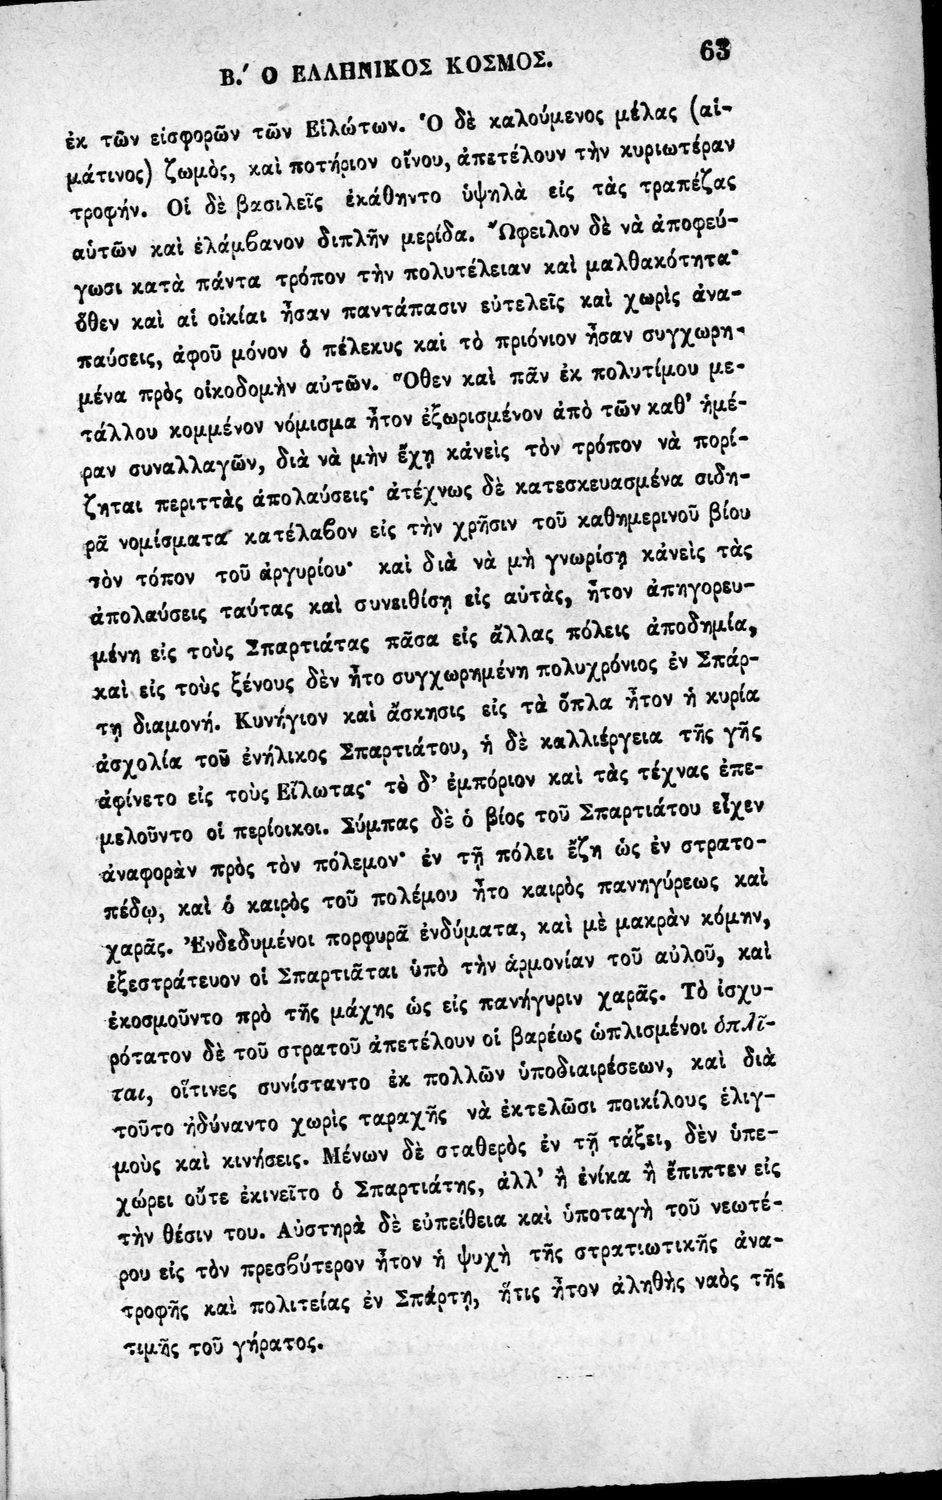 Β.΄ Ο ΕΛΛΗΝΙΚΟΣ ΚΟΣΜΟΣ. 63
ἐκ τῶν εἰσφορῶν τῶν Εἱλώτων. Ὁ δὲ καλούμενος μέλας (αἱ-
μάτινος) ζωμὸς, καὶ ποτήριον οἴνου, ἀπετέλουν τὴν κυριωτέραν
τροφήν. Οἱ δὲ βασιλεῖς ἐκάθηντο ὑψηλὰ εἰς τὰς τραπέζας
αὑτῶν καὶ ἐλάμβανον διπλῆν μερίδα. Ὤφειλον δὲ νὰ ἀποφεύ-
γωσι κατὰ πάντα τρόπον τὴν πολυτέλειαν καὶ μαλθακότητα·
ὅθεν καὶ αἱ οἰκίαι ἦσαν παντάπασιν εὐτελεῖς καὶ χωρὶς ἀνα-
παύσεις, ἀφοῦ μόνον ὁ πέλεκυς καὶ τὸ πριόνιον ἦσαν συγχωρη-
μένα πρὸς οἰκοδομὴν αὐτῶν. Ὅθεν καὶ πᾶν ἐκ πολυτίμου με-
τάλλου κομμένον νόμισμα ἦτον ἐξωρισμένον ἀπὸ τῶν καθ' ἡμέ-
ραν συναλλαγῶν, διὰ νὰ μὴν ἔχῃ κάνεὶς τὸν τρόπον νὰ πορί-
ζηται περιττὰς ἀπολαύσεις· ἀτέχνως δὲ κατεσκευασμένα σιδη-
ρᾶ νομίσματα κατέλαβον εἰς τὴν χρῆσιν τοῦ καθημερινοῦ βίου
τὸν τόπον τοῦ ἀργυρίου· καὶ διὰ νὰ μὴ γνωρίσῃ κάνεὶς τὰς
ἀπολαύσεις ταύτας καὶ συνειθίσῃ εἰς αὐτὰς, ἦτον ἀπηγορευ-
μένη εἰς τοὺς Σπαρτιάτας πᾶσα εἰς ἄλλας πόλεις ἀποδημία,
καὶ εἰς τοὺς ξένους δὲν ἦτο συγχωρημένη πολυχρόνιος ἐν Σπάρ-
τῃ διαμονή. Κυνήγιον καὶ ἄσκησις εἰς τὰ ὅπλα ἦτον ἡ κυρία
ἀσχολία τοῦ ἐνήλικος Σπαρτιάτου, ἡ δὲ καλλιέργεια τῆς γῆς
ἀφίνετο εἰς τοὺς Εἵλωτας· τὸ δ' ἐμπόριον καὶ τὰς τέχνας ἐπε-
μελοῦντο οἱ περίοικοι. Σύμπας δὲ ὁ βίος τοῦ Σπαρτιάτου εἶχεν
ἀναφορὰν πρὸς τὸν πόλεμον· ἐν τῇ πόλει ἔζη ὡς ἐν στρατο-
πέδῳ, καὶ ὁ καιρὸς τοῦ πολέμου ἦτο καιρὸς πανηγύρεως καὶ
χαρᾶς. Ἐνδεδυμένοι πορφυρᾶ ἐνδύματα, καὶ μὲ μακρὰν κόμην,
ἐξεστράτευον οἱ Σπαρτιᾶται ὑπὸ τὴν ἁρμονίαν τοῦ αὐλοῦ, καὶ
ἐκοσμοῦντο πρὸ τῆς μάχης ὡς εἰς πανήγυριν χαρᾶς. Τὸ ἰσχυ-
ρότατον δὲ τοῦ στρατοῦ ἀπετέλουν οἱ βαρέως ὡπλισμένοι ὁπλῖ-
ται, οἵτινες συνίσταντο ἐκ πολλῶν ὑποδιαιρέσεων, καὶ διὰ
τοῦτο ἠδύναντο χωρὶς ταραχῆς νὰ ἐκτελῶσι ποικίλους ἑλιγ-
μοὺς καὶ κινήσεις. Μένων δὲ σταθερὸς ἐν τῇ τάξει, δὲν ὑπε-
χώρει οὔτε ἐκινεῖτο ὁ Σπαρτιάτης, ἀλλ' ἢ ἐνίκα ἢ ἔπιπτεν εἰς
τὴν θέσιν του. Αὐστηρὰ δὲ εὐπείθεια καὶ ὑποταγὴ τοῦ νεωτέ-
ρου εἰς τὸν πρεσβύτερον ἦτον ἡ ψυχὴ τῆς στρατιωτικῆς ἀνα-
τροφῆς καὶ πολιτείας ἐν Σπάρτῃ, ἥτις ἦτον ἀληθὴς ναὸς τῆς
τιμῆς τοῦ γήρατος.